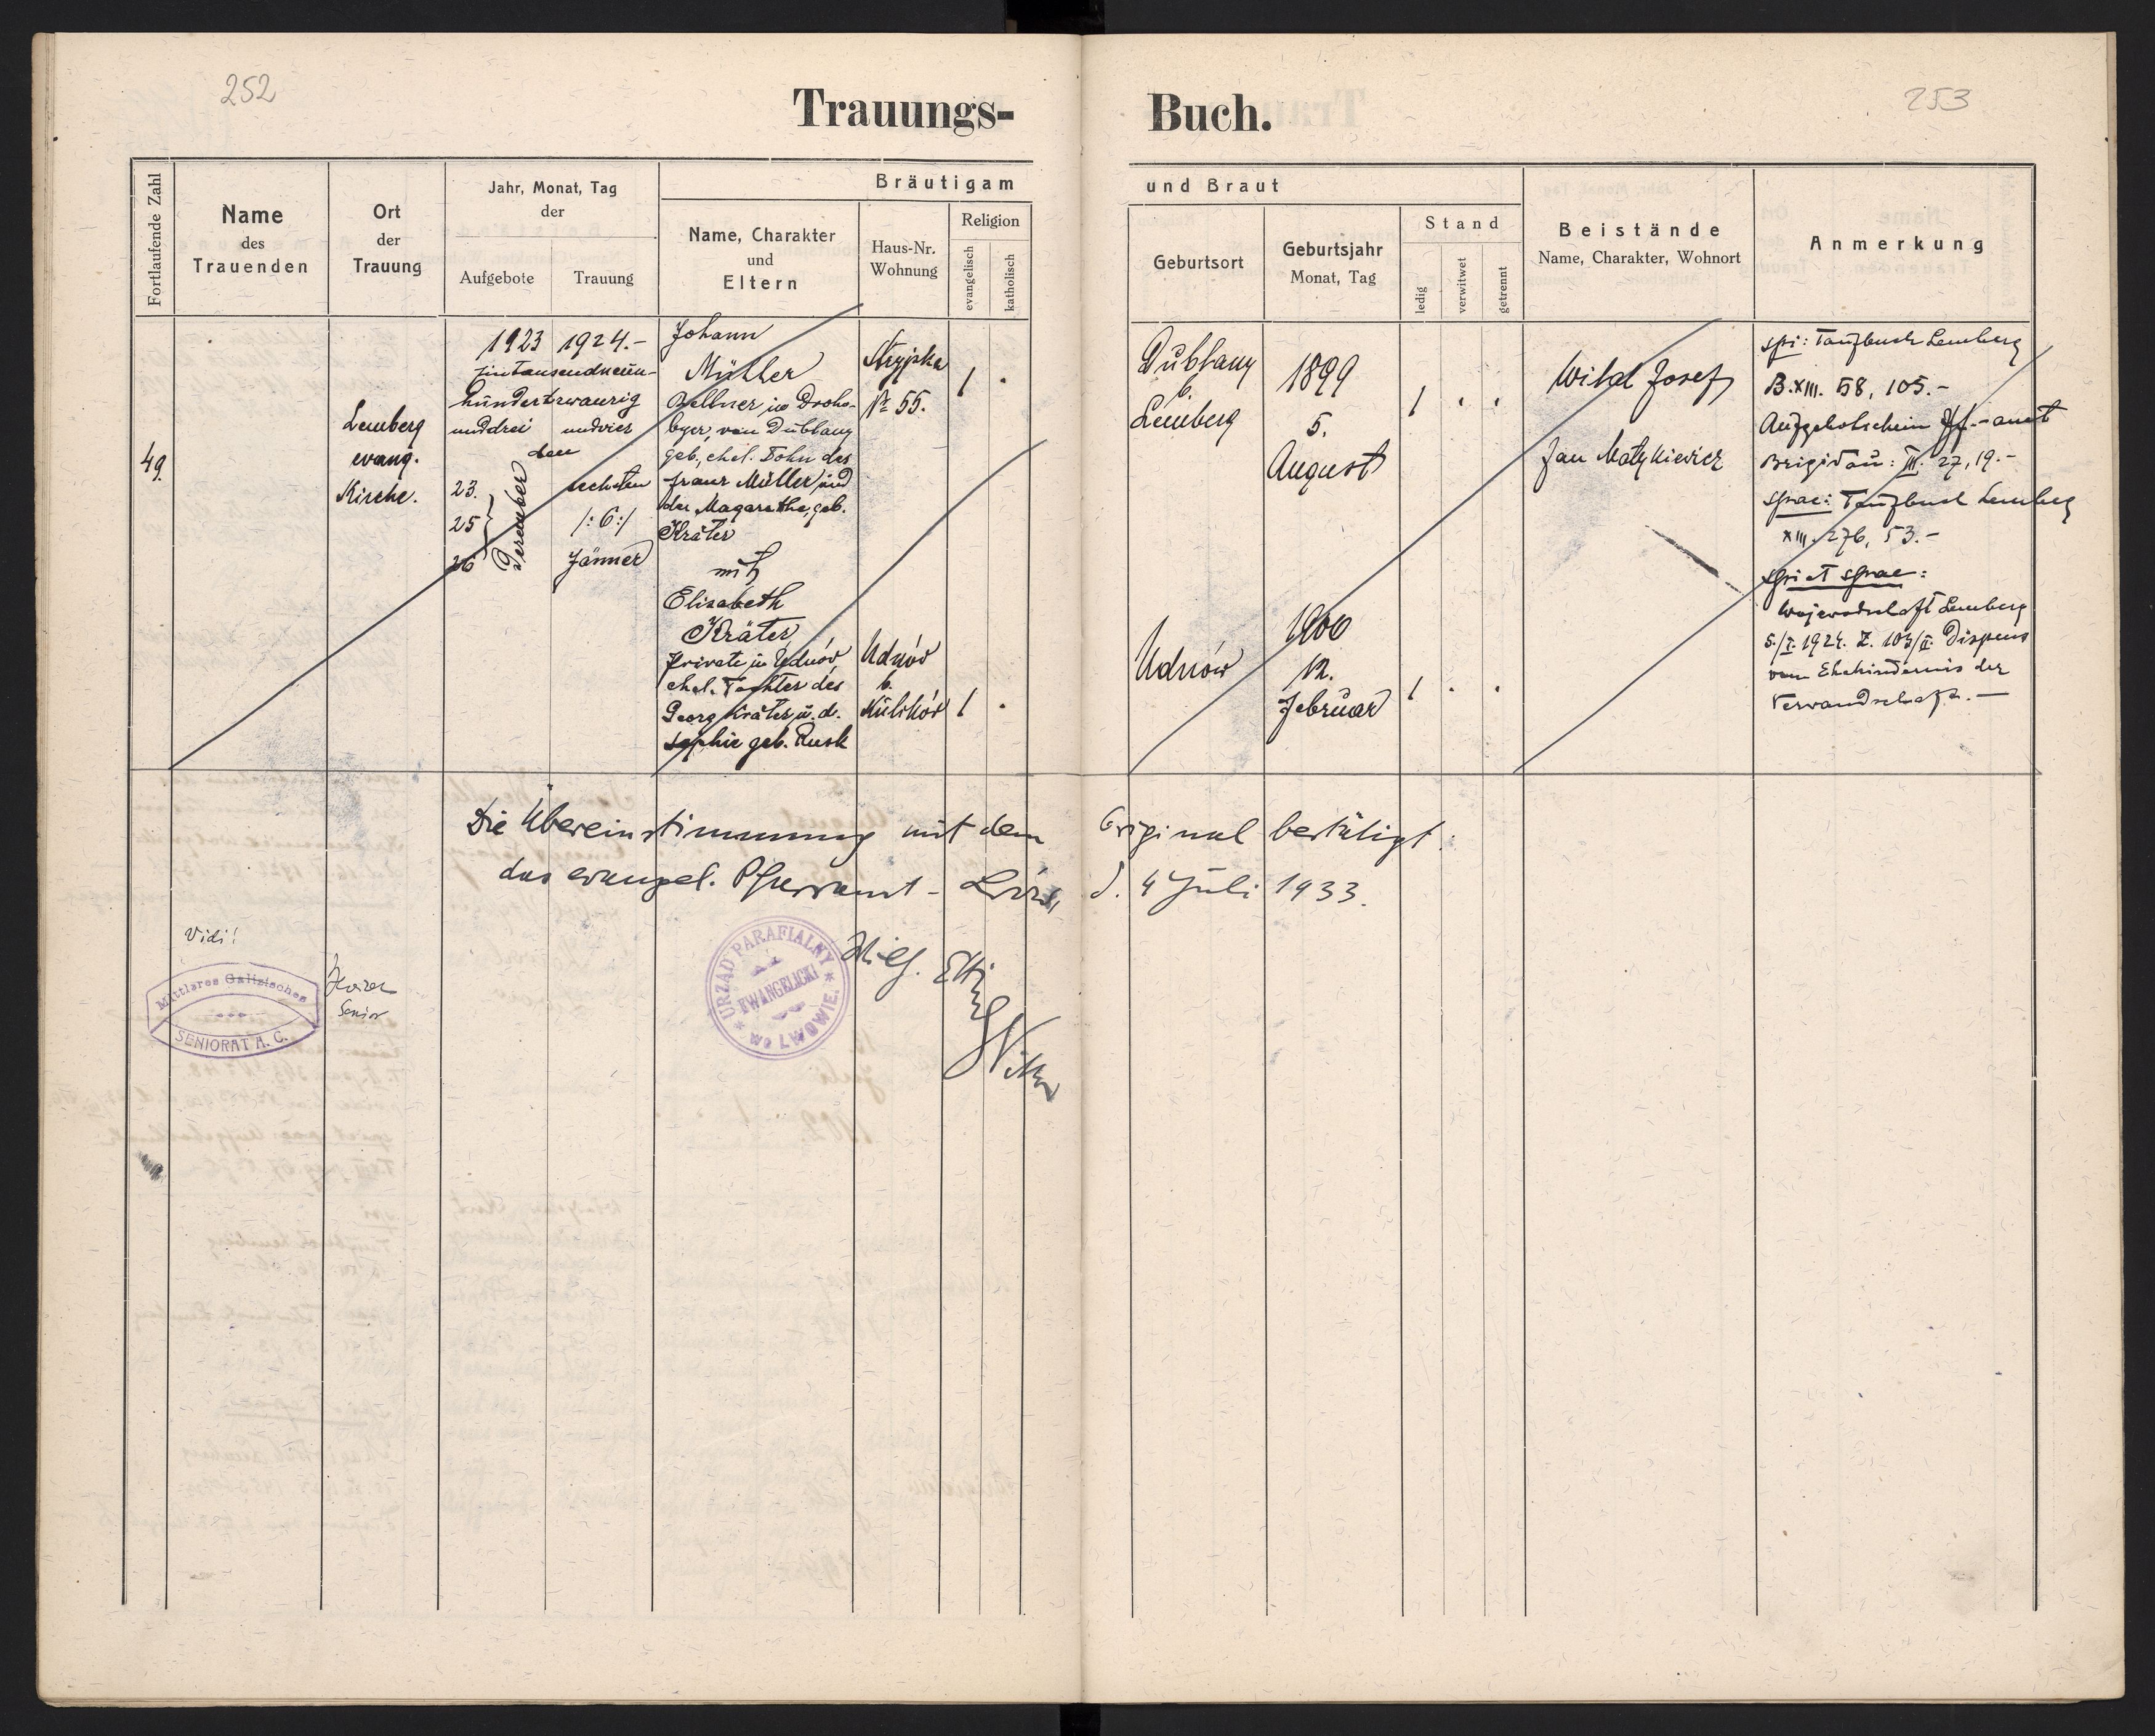 252
253
Trauungs-
Buch.
Fortlaufende Zahl
Name
des
Trauenden
Ort
der
Trauung
Jahr, Monat, Tag
der
Aufgebote
Trauung
Bräutigam
Name, Charakter
und
Eltern
Haus-Nr.
Wohnung
Religion
evangelisch
katholisch
und Braut
Geburtsort
Geburtsjahr
Monat, Tag
Stand
ledig
verwitwet
getrennt
Beistände
Name, Charakter, Wohnort
Anmerkung
49.
Lemberg
evang.
Kirche.
1923
eintausendneun-
hundertzwanzig
unddrei
undvier
den
23.
25
26
Dezember
1924.-
sechsten
/:6:/
Jänner
Johann
Müller
in Droho-
bycz, von Dublany
geb., ehel. Sohn des
Franz Müller und
der Magarethe, geb.
Kräter
mit
Elisabeth
Kräter
Private in Udnów
ehel. Tochter des
Georg Kräter u. d.
Sophie geb. Rusk
Stryjska
Nr 55.
1 .
Udnów
b.
Kulików
1 .
Dublany
b.
Lemberg
1899
5.
August
1 . .
Udnów
1900
12.
Februar
1 . .
Wild Josef
Jan Matykiewicz
spi: Taufbuch Lemberg
B. XIII. 58, 105.-
Aufgebotschein Pf.-amt
Brigidau: III. 27, 19.-
spae: Taufbuch Lemberg
XIII. 276, 53.-
spi et spae:
Wojewodschaft Lemberg
5./I. 1924. Z. 103/II. Dispens
vom Ehehindernis der
Verwandschaft.-
Die Übereinstimmung mit dem Original bestätigt:
das evangel. Pfarramt - Lwów, d. 4 Juli 1933.
Vidi!
Mittleres Galizisches
SENIORAT A. C.
Senior
URZĄD PARAFIALNY
EWANGELICKI
WE LWOWIE